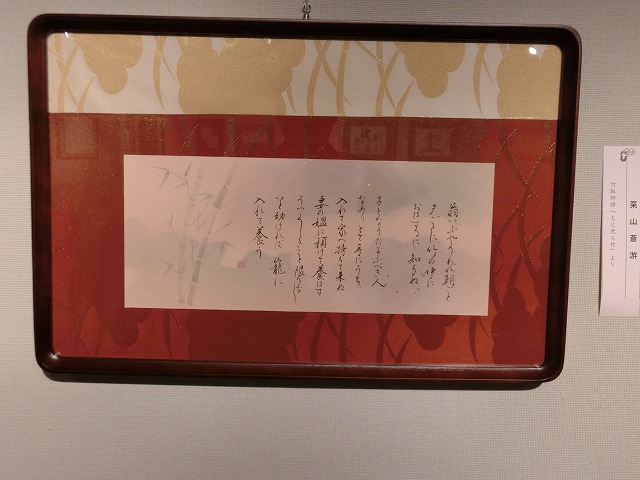 翁いふやうわれ朝ごと
夕ごとに竹の中に
おはするに知りぬ
子となりたまふべき人
なめりとて手にうち
入れて家へ持ちて来ぬ
妻の嫗に預けて養はす
うつくしきこと限りなし
いと幼ければ籠に
入れて養ふ
栗山蒼游
竹取物語「もと光る竹」より